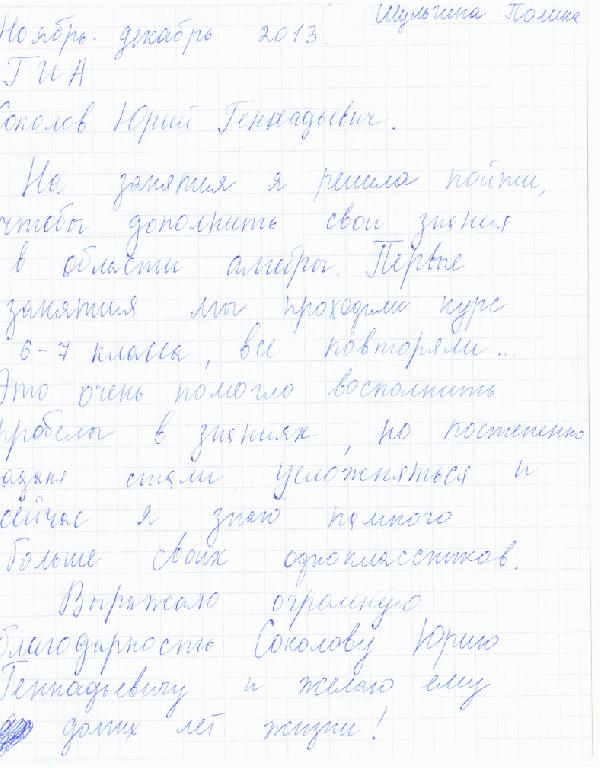 Шульгина Полина
Ноябрь-декабрь 2013.
ГИА
Соколов Юрий Геннадьевич.
На занятия я решила пойти,
чтобы дополнить свои знания
в области алгебры. Первые
занятия мы проходили курс
6-7 класса, все повторяли...
Это очень помогло восполнить
пробелы в знаниях, но постепенно
задания стали усложняться и
сейчас я знаю намного
больше своих одноклассников.
Выражаю огромную
благодарность Соколову Юрию
Геннадьевичу и желаю ему
долгих лет жизни!